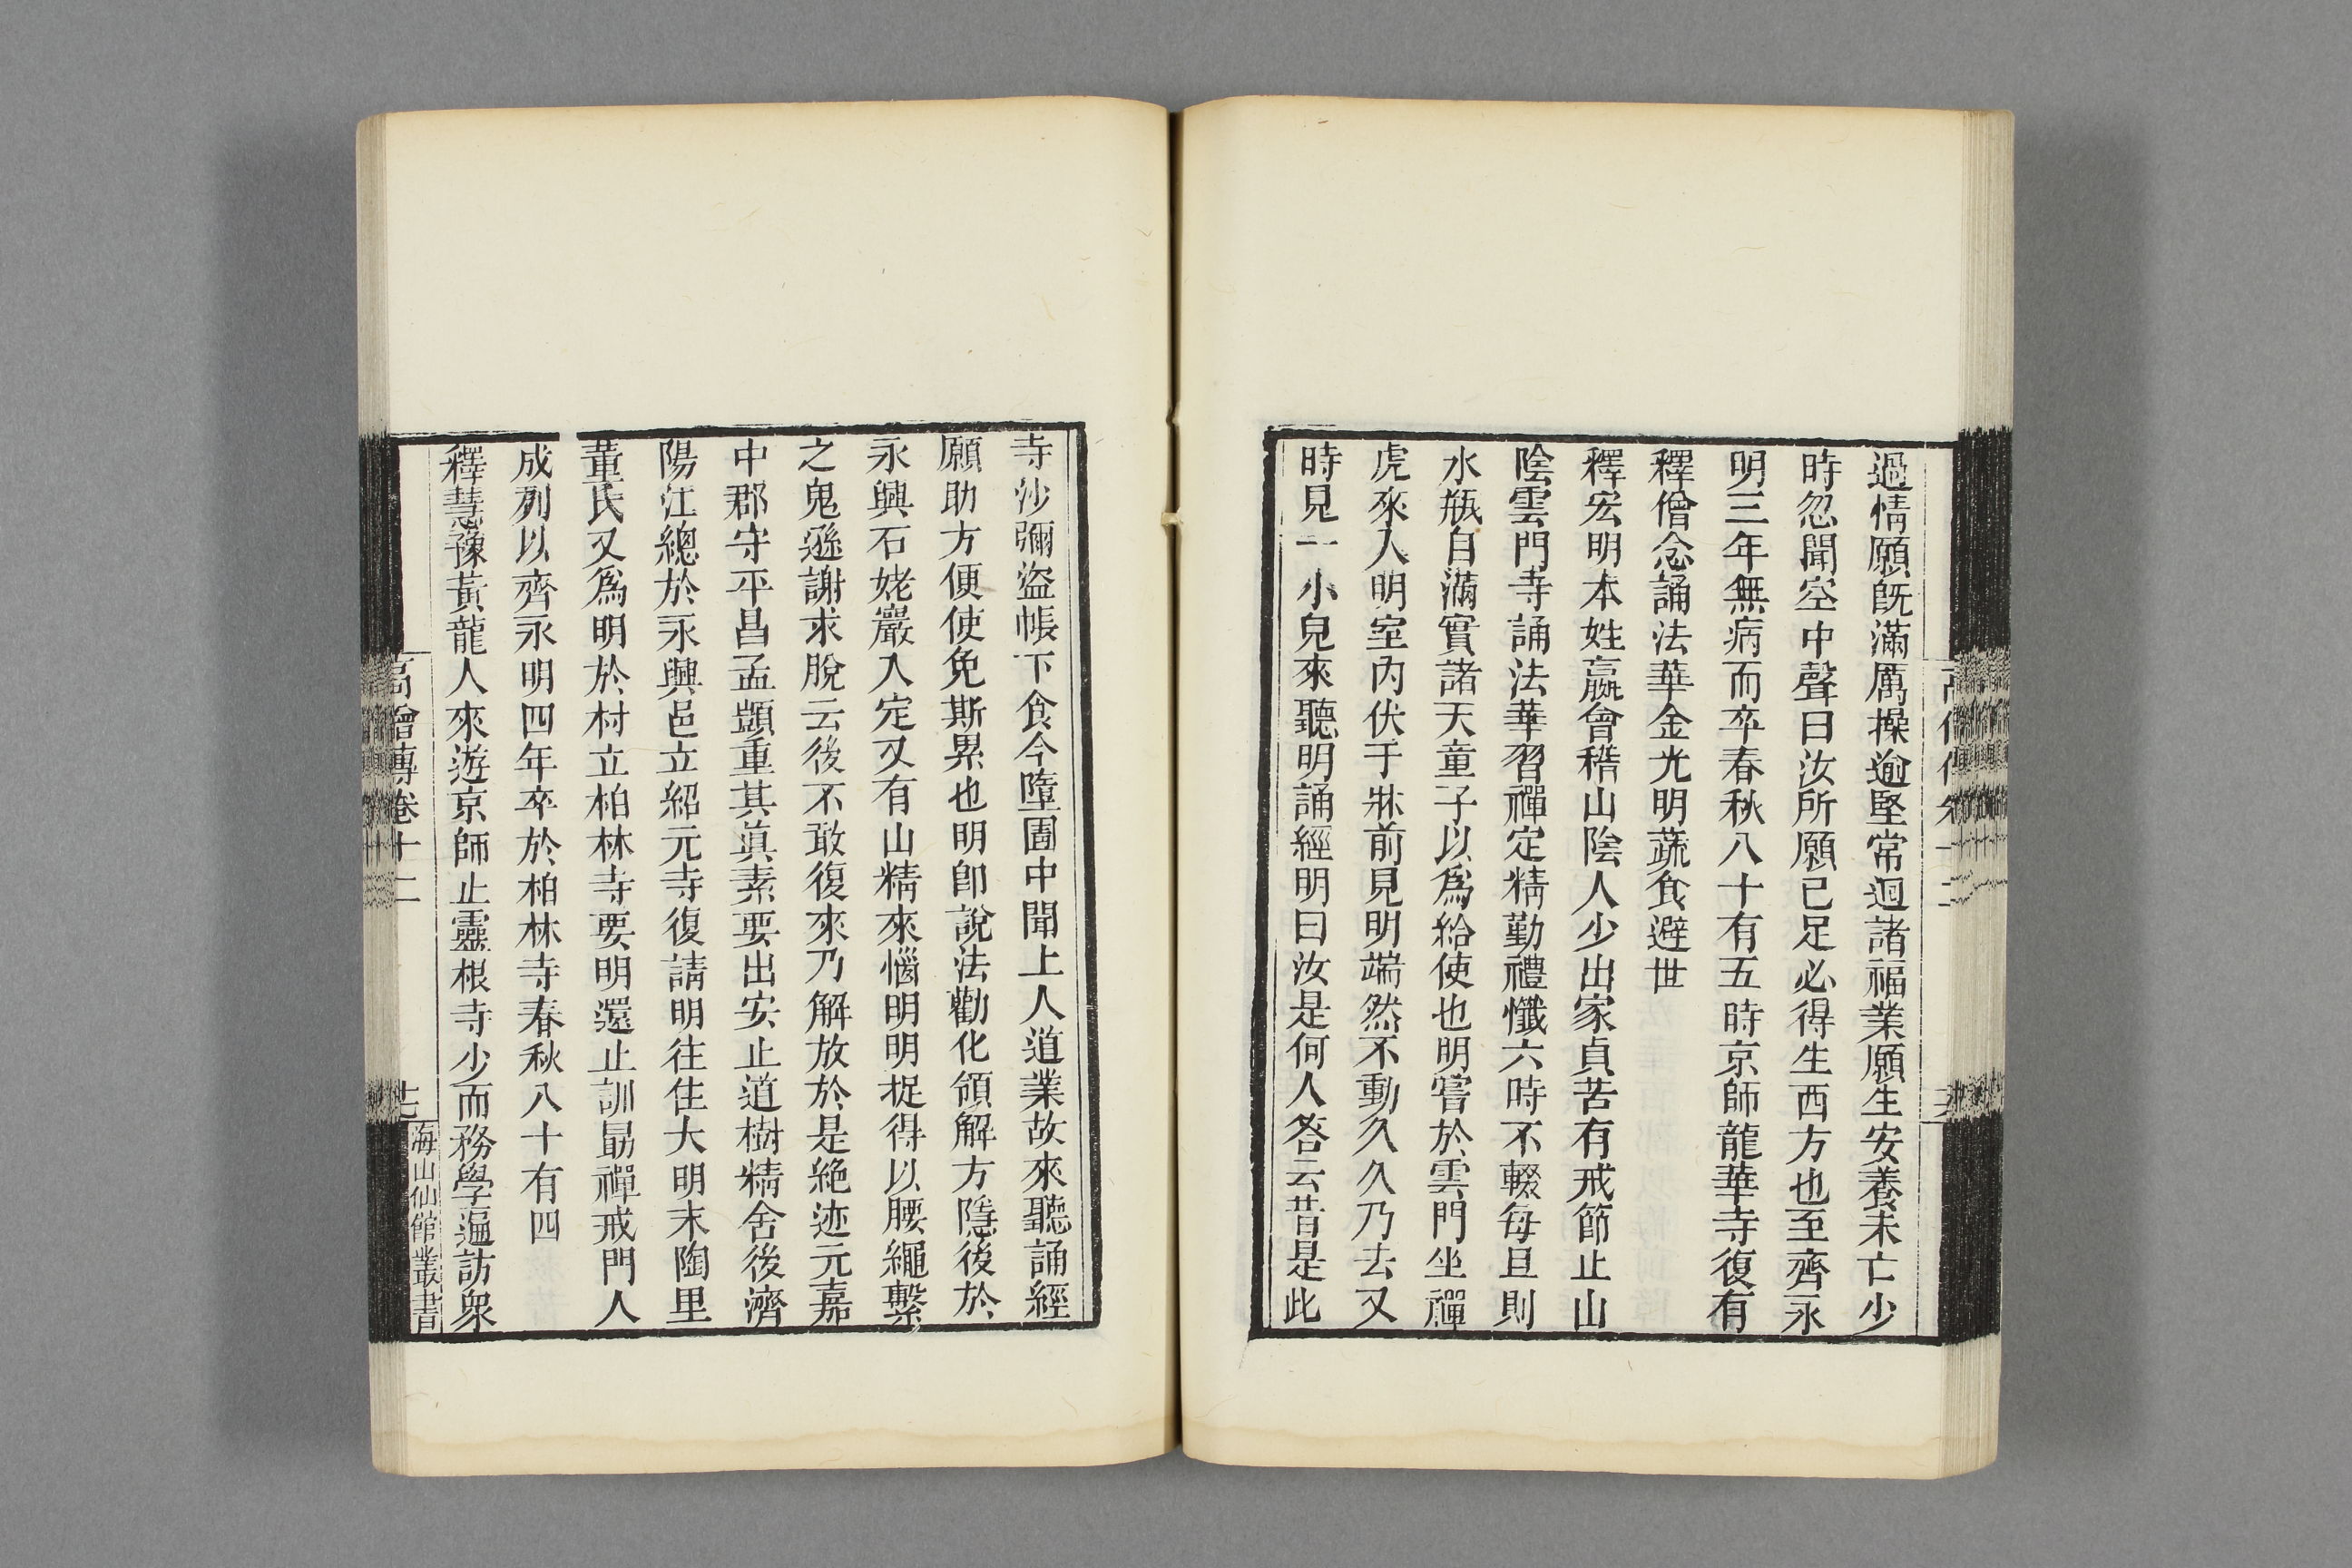 過情願既滿厲操逾堅常迴諸福業願生安養未亡少
時忽聞空中聲曰汝所願已足必得生西方也至齊永
明三年無病而卒春秋八十有五時京師龍華寺復有
釋僧念誦法華金光明蔬食避世
釋宏明本姓嬴會稽山陰人少出家貞苦有戒節止山
陰雲門寺誦法華習禪定精勤禮懺六時不輟每旦則
水瓶自滿實諸天童子以爲給使也明嘗於雲門坐禪
虎來入明室內伏于牀前見明端然不動久久乃去又
時見一小兒來聽明誦經明曰汝是何人答云昔是此
寺沙彌盜帳下食今墮圊中聞上人道業故來聽誦經
願助方便使免斯累也明卽說法勸化領解方隱後於
永興石姥巖入定又有山精來惱明明捉得以腰繩繫
之鬼遜謝求脫云後不敢復來乃解放於是絶迹元嘉
中郡守平昌孟顗重其眞素要出安止道樹精舍後濟
陽江總於永興邑立紹元寺復請明往住大明末陶里
董氏又爲明於村立柏林寺要明還止訓勗禪戒門人
成列以齊永明四年卒於柏林寺春秋八十有四
釋慧豫黃龍人來遊京師止靈根寺少而務學遍訪衆
高僧傳卷十二
海山仙館叢書